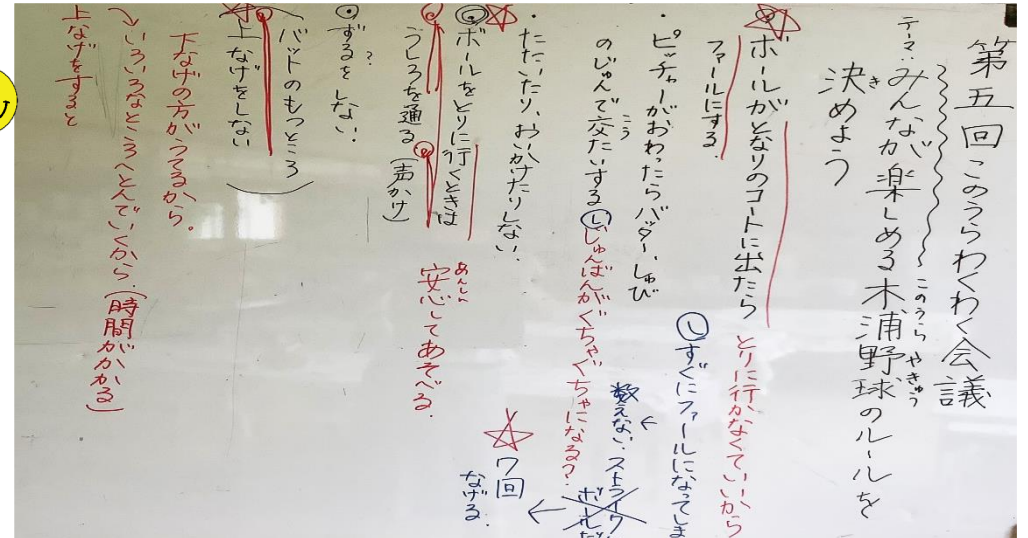 第五回このうらわくわく会議
テーマ:みんなが楽しめる木浦野球のルールを
このうらやきゅう
決めよう
き
ボールがとなりのコートに出たら
ファールにする.
とりに行かなくていいから
し すぐにファールになってしま
・ピッチャーがおわったらバッター、しゅび
のじゅんで交たいする
こう
し じゅんばんがぐちゃぐちゃになる?
数えない.ストライク
ボール
7回
なげる.
・たたいたり、おいかけたりしない.
ボールをとりに行くときは
うしろを通る(声かけ)
安心してあそべる.
あんしん
ずるをしない.
?
(バットのもつところ)
上なげをしない
下なげの方がうてるから。
いろいろなところへとんでいくから.(時間がかかる)
上なげをすると